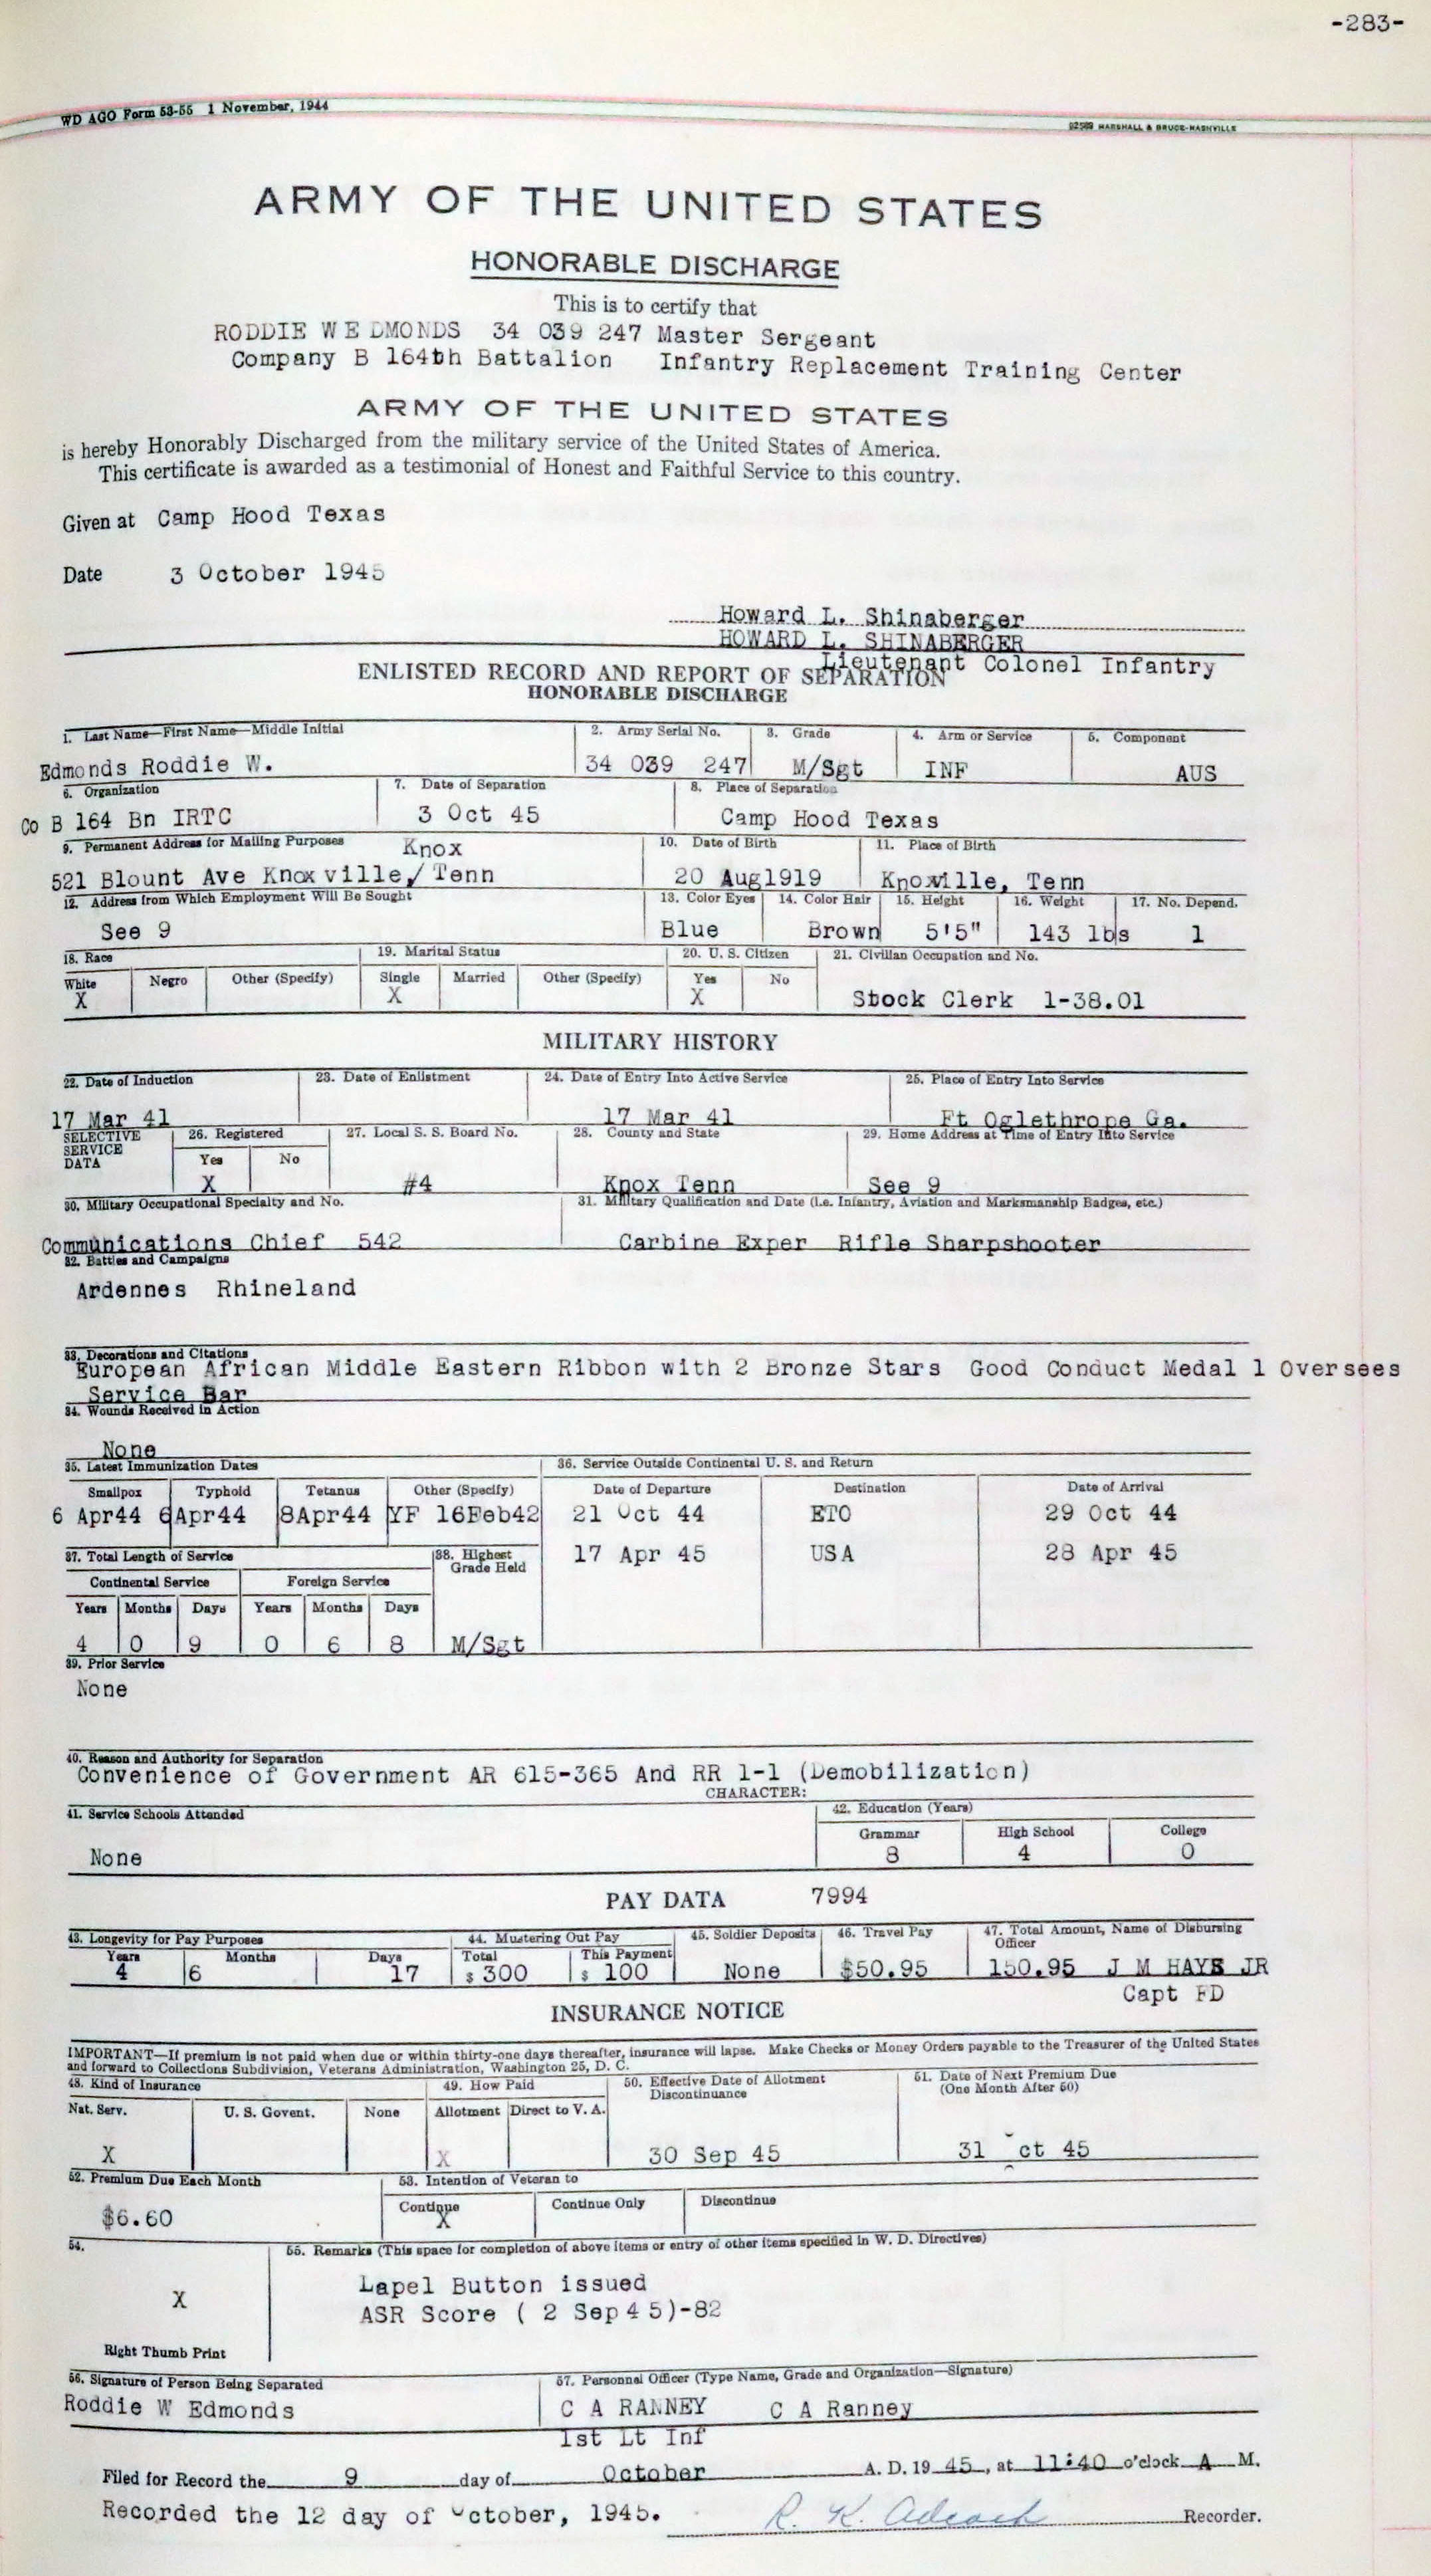 -283-
WD AGO Form 53-55 1 November, 1944
92589 MARSHALL & BRUCE-NASHVILLE
ARMY OF THE UNITED STATES
HONORABLE DISCHARGE
This is to certify that
RODDIE W E DMONDS 34 039 247 Master Sergeant
Company B 164th Battalion Infantry Replacement Training Center
ARMY OF THE UNITED STATES
is hereby Honorably Discharged from the military service of the United States of America.
This certificate is awarded as a testimonial of Honest and Faithful Service to this country.
Given at Camp Hood Texas
Date 3 October 1945
Howard L. Shinaberger
HOWARD L. SHINABERGER
Lieutenant Colonel Infantry
ENLISTED RECORD AND REPORT OF SEPARATION
HONORABLE DISCHARGE
1. Last Name—First Name—Middle Initial 2. Army Serial No. 3. Grade 4. Arm or Service 5. Component
Edmonds Roddie W. 34 039 247 M/Sgt INF AUS
6. Organization 7. Date of Separation 8. Place of Separation
Co B 164 Bn IRTC 3 Oct 45 Camp Hood Texas
9. Permanent Address for Mailing Purposes Knox 10. Date of Birth 11. Place of Birth
521 Blount Ave Knoxville/ Tenn 20 Aug1919 Knoxville, Tenn
12. Address from Which Employment Will Be Sought 13. Color Eyes 14. Color Hair 15. Height 16. Weight 17. No. Depend.
See 9 Blue Brown 5'5" 143 lbs 1
18. Race 19. Marital Status 20. U. S. Citizen 21. Civilian Occupation and No.
White Negro Other (Specify) Single Married Other (Specify) Yes No
X X X Stock Clerk 1-38.01
MILITARY HISTORY
22. Date of Induction 23. Date of Enlistment 24. Date of Entry Into Active Service 25. Place of Entry Into Service
17 Mar 41 17 Mar 41 Ft Oglethrope Ga.
SELECTIVE SERVICE DATA 26. Registered 27. Local S. S. Board No. 28. County and State 29. Home Address at Time of Entry Into Service
Yes No
X #4 Knox Tenn See 9
30. Military Occupational Specialty and No. 31. Military Qualification and Date (i.e. Infantry, Aviation and Marksmanship Badges, etc.)
Communications Chief 542 Carbine Exper Rifle Sharpshooter
32. Battles and Campaigns
Ardennes Rhineland
33. Decorations and Citations
European African Middle Eastern Ribbon with 2 Bronze Stars Good Conduct Medal 1 Oversees
Service Bar
34. Wounds Received in Action
None
35. Latest Immunization Dates 36. Service Outside Continental U. S. and Return
Smallpox Typhoid Tetanus Other (Specify) Date of Departure Destination Date of Arrival
6 Apr44 6Apr44 8Apr44 YF 16Feb42 21 Oct 44 ETO 29 Oct 44
17 Apr 45 USA 28 Apr 45
37. Total Length of Service 38. Highest Grade Held
Continental Service Foreign Service
Years Months Days Years Months Days
4 0 9 0 6 8 M/Sgt
39. Prior Service
None
40. Reason and Authority for Separation
Convenience of Government AR 615-365 And RR 1-1 (Demobilization)
CHARACTER:
41. Service Schools Attended 42. Education (Years)
Grammar High School College
None 8 4 0
PAY DATA 7994
43. Longevity for Pay Purposes 44. Mustering Out Pay 45. Soldier Deposits 46. Travel Pay 47. Total Amount, Name of Disbursing Officer
Years Months Days Total This Payment
4 6 17 $ 300 $ 100 None $50.95 150.95 J M HAYS JR
Capt FD
INSURANCE NOTICE
IMPORTANT—If premium is not paid when due or within thirty-one days thereafter, insurance will lapse. Make Checks or Money Orders payable to the Treasurer of the United States
and forward to Collections Subdivision, Veterans Administration, Washington 25, D. C.
48. Kind of Insurance 49. How Paid 50. Effective Date of Allotment Discontinuance 51. Date of Next Premium Due (One Month After 50)
Nat. Serv. U. S. Govent. None Allotment Direct to V. A.
X X 30 Sep 45 31 ct 45
52. Premium Due Each Month 53. Intention of Veteran to
Continue Continue Only Discontinue
$6.60 X
54. 55. Remarks (This space for completion of above items or entry of other items specified in W. D. Directives)
Lapel Button issued
X ASR Score ( 2 Sep4 5)-82
Right Thumb Print
56. Signature of Person Being Separated 57. Personnel Officer (Type Name, Grade and Organization—Signature)
Roddie W Edmonds C A RANNEY C A Ranney
1st Lt Inf
Filed for Record the 9 day of October A. D. 19 45, at 11:40 o'clock A M.
Recorded the 12 day of October, 1945. R. K. Adcock Recorder.